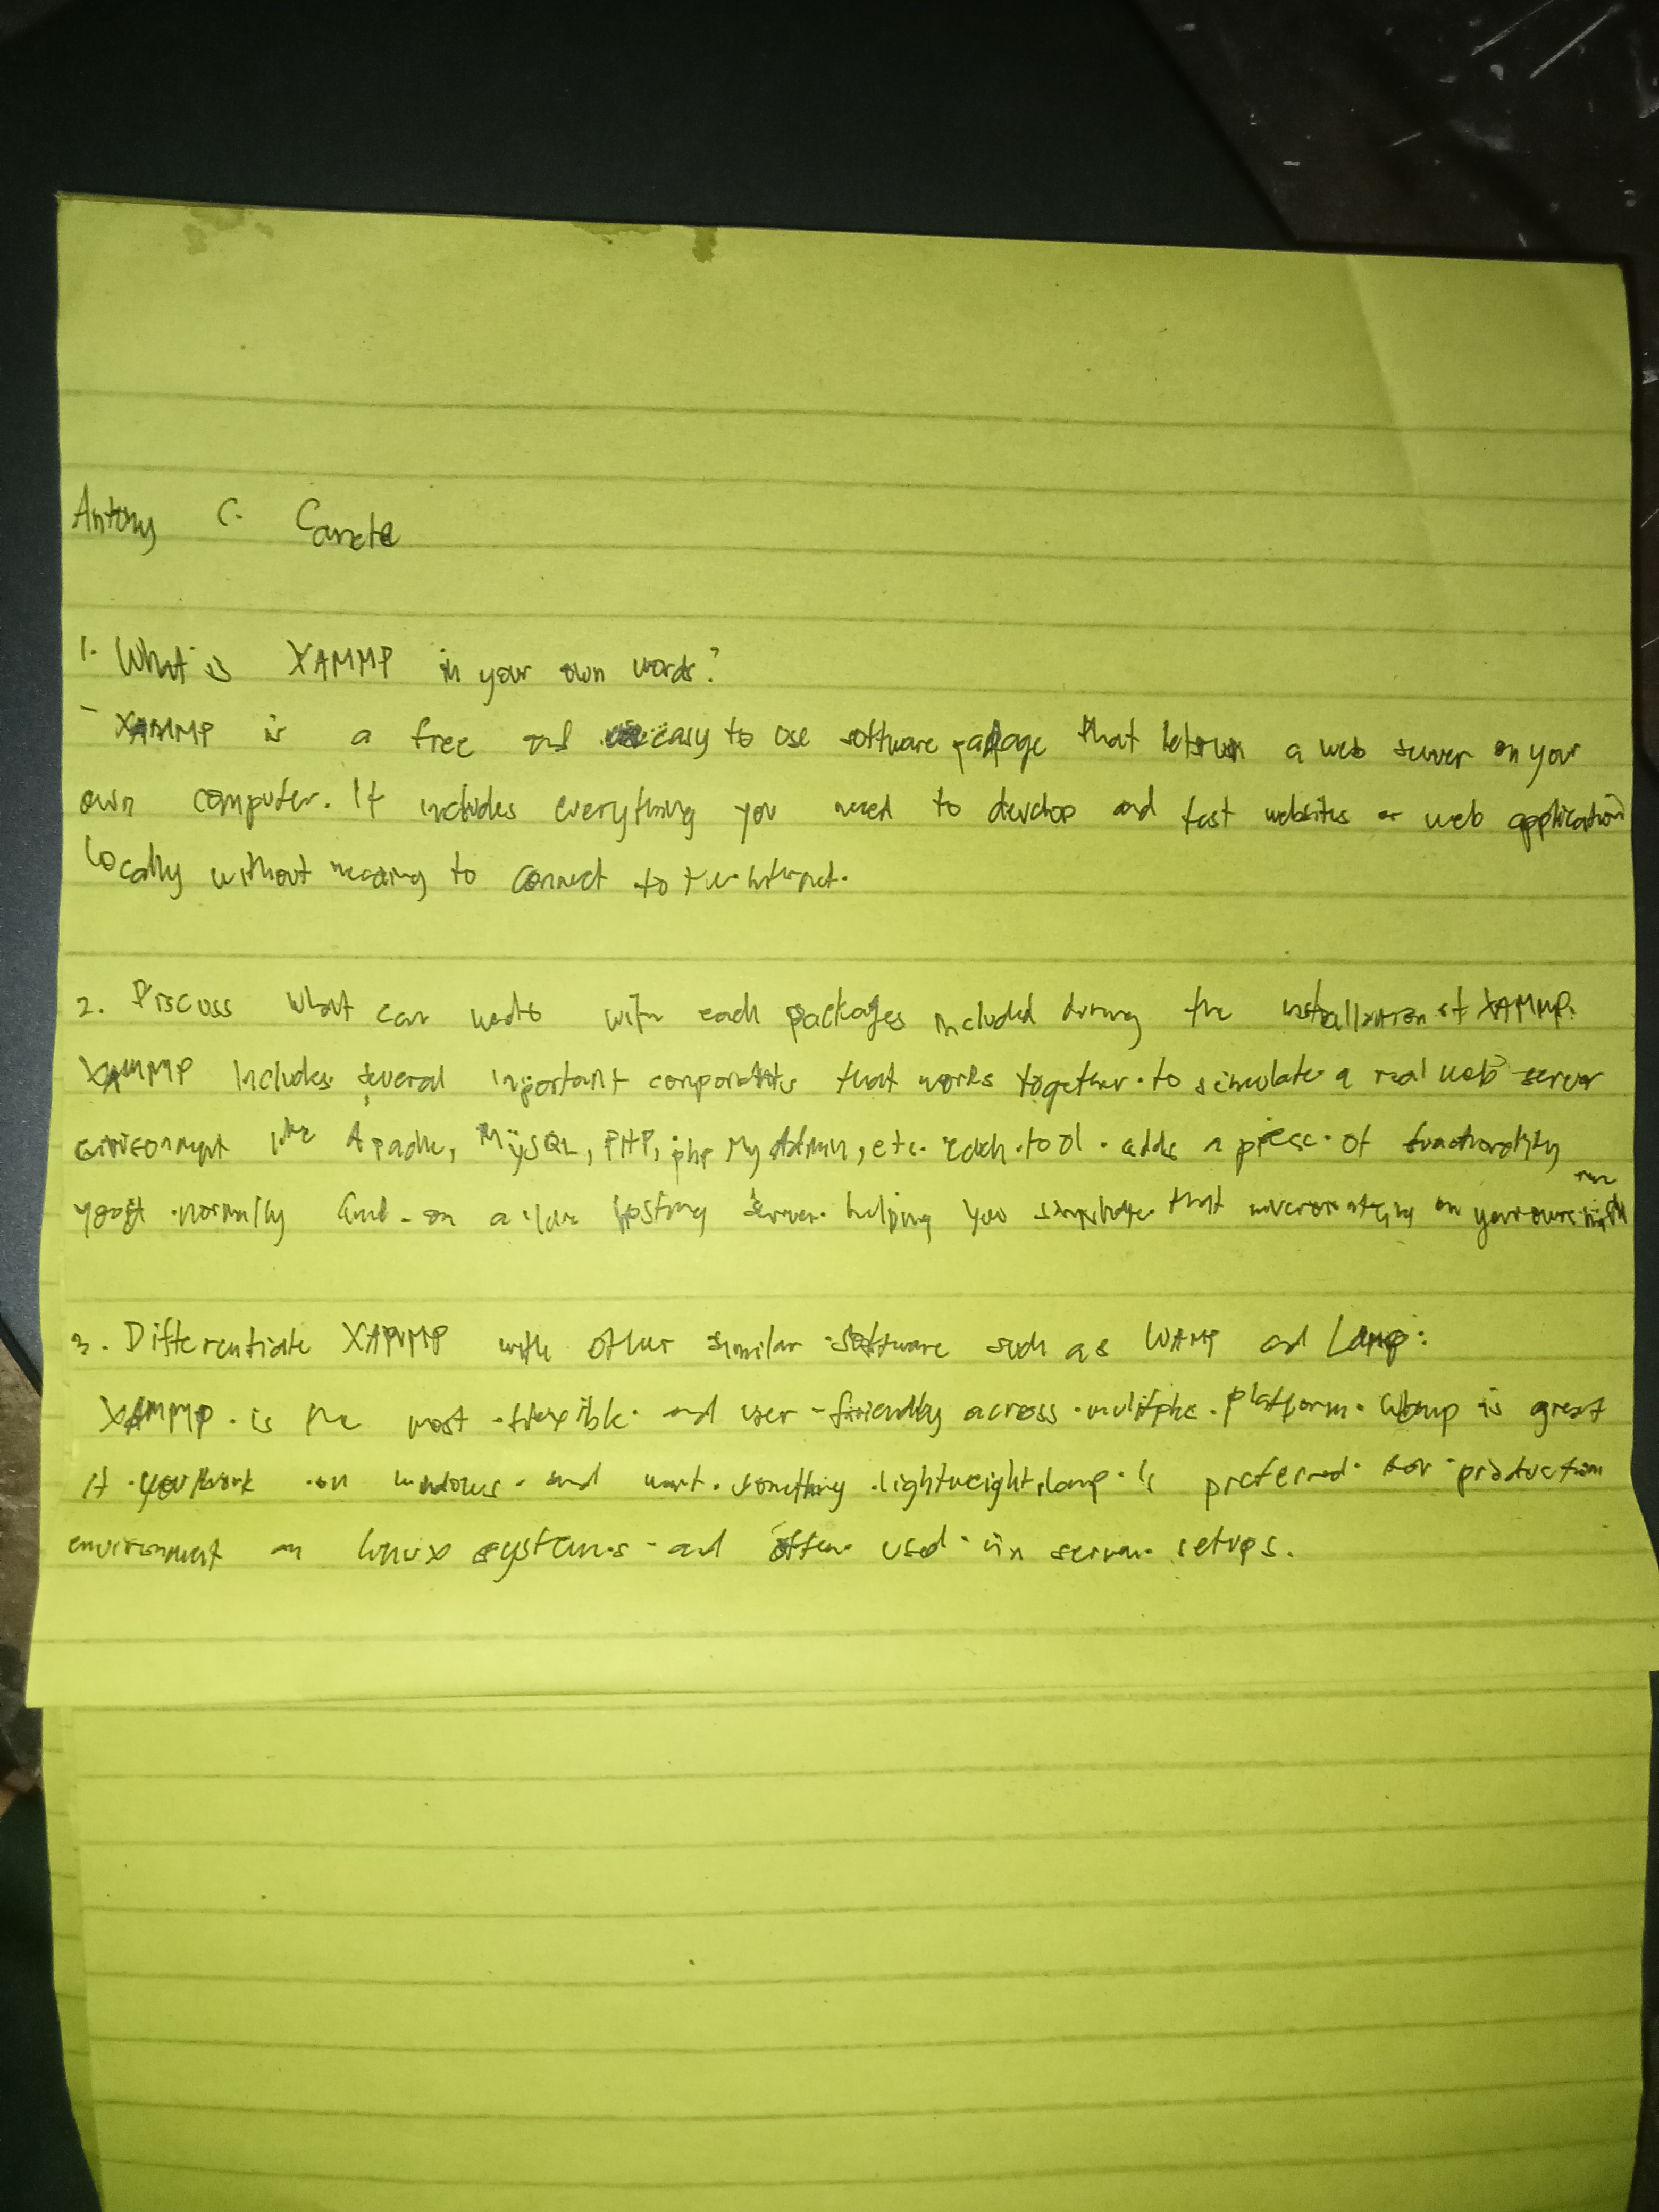 Antony C. Canete
1. What is XAMMP in your own words?
- XAMMP is a free and easy to use software package that lets run a web server on your
own computer. It includes everything you need to develop and test websites or web application
locally without needing to connect to the internet.
2. Discuss what can we do with each packages included during the installation of XAMMP.
XAMMP includes several important components that works together to simulate a real web server
environment like Apache, MySQL, PHP, phpMyAdmin, etc. each tool adds a piece of functionality
normally find on a live hosting server helping you that on your own
3. Differentiate XAMMP with other similar software such as WAMP and Lamp:
XAMMP is the most flexible and user-friendly across multiple platform. Wamp is great
if you work on windows and want something lightweight, lamp is preferred for production
environment on linux systems and often used in server setups.